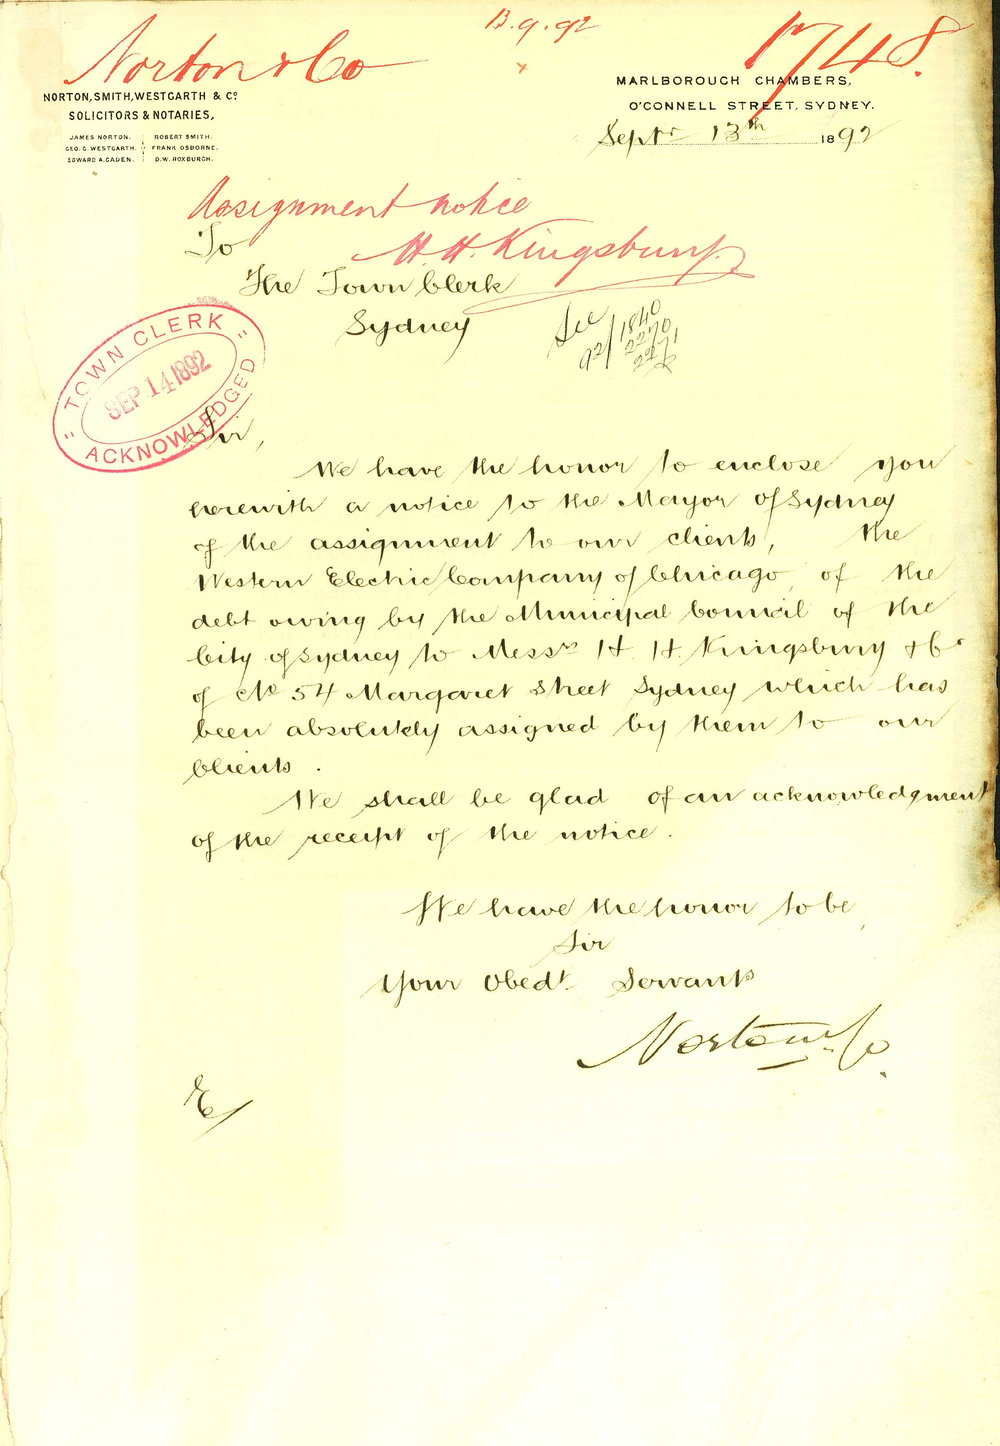 13.9.92
Norton & Co
1748.
NORTON, SMITH, WESTGARTH & Co.
SOLICITORS & NOTARIES,
JAMES NORTON. ROBERT SMITH.
GEO. C. WESTGARTH. FRANK OSBORNE.
EDWARD A. GADEN. D.W. ROXBURGH.
MARLBOROUGH CHAMBERS,
O'CONNELL STREET, SYDNEY.
Septr 13th 1892
Assignment notice
H. H. Kingsbury.
To
The Town Clerk
Sydney
See
92/1840
2270
2271
"TOWN CLERK"
SEP 14 1892
ACKNOWLEDGED
Sir,
We have the honor to enclose you
herewith a notice to the Mayor of Sydney
of the assignment to our clients, the
Western Electric Company of Chicago, of the
debt owing by the Municipal Council of the
City of Sydney to Messrs H. H. Kingsbury & Co
of No 54 Margaret Street Sydney which has
been absolutely assigned by them to our
Clients.
We shall be glad of an acknowledgment
of the receipt of the notice.
We have the honor to be,
Sir
Your Obedt. Servants
Norton & Co.
E/